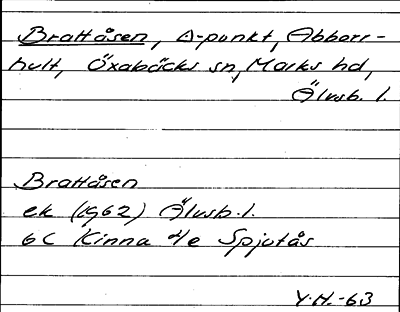 Brattåsen, Δ-punkt, Abborr-
hult, Öxabäcks sn, Marks hd,
Älvsb. l.
Brattåsen
ek (1962) Älvsb. l.
6C Kinna 4/e Spjutås
Y.H.-63